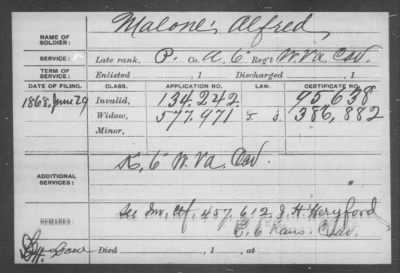 NAME OF SOLDIER: Malone, Alfred,
SERVICE: Late rank, P. Co. A, 6 Reg't W. Va. Cav.
TERM OF SERVICE: Enlisted , 1 Discharged , 1
DATE OF FILING. CLASS. APPLICATION NO. LAW. CERTIFICATE NO.
1868, June 29 Invalid, 134.242 95638
Widow, 577.971 386,882
Minor,
ADDITIONAL SERVICES: K, 6" W. Va. Cav.
REMARKS: See Inv. Ctf. 457.612. J. H. Heryford
E. 6" Kans. Cav.
Died , 1 , at